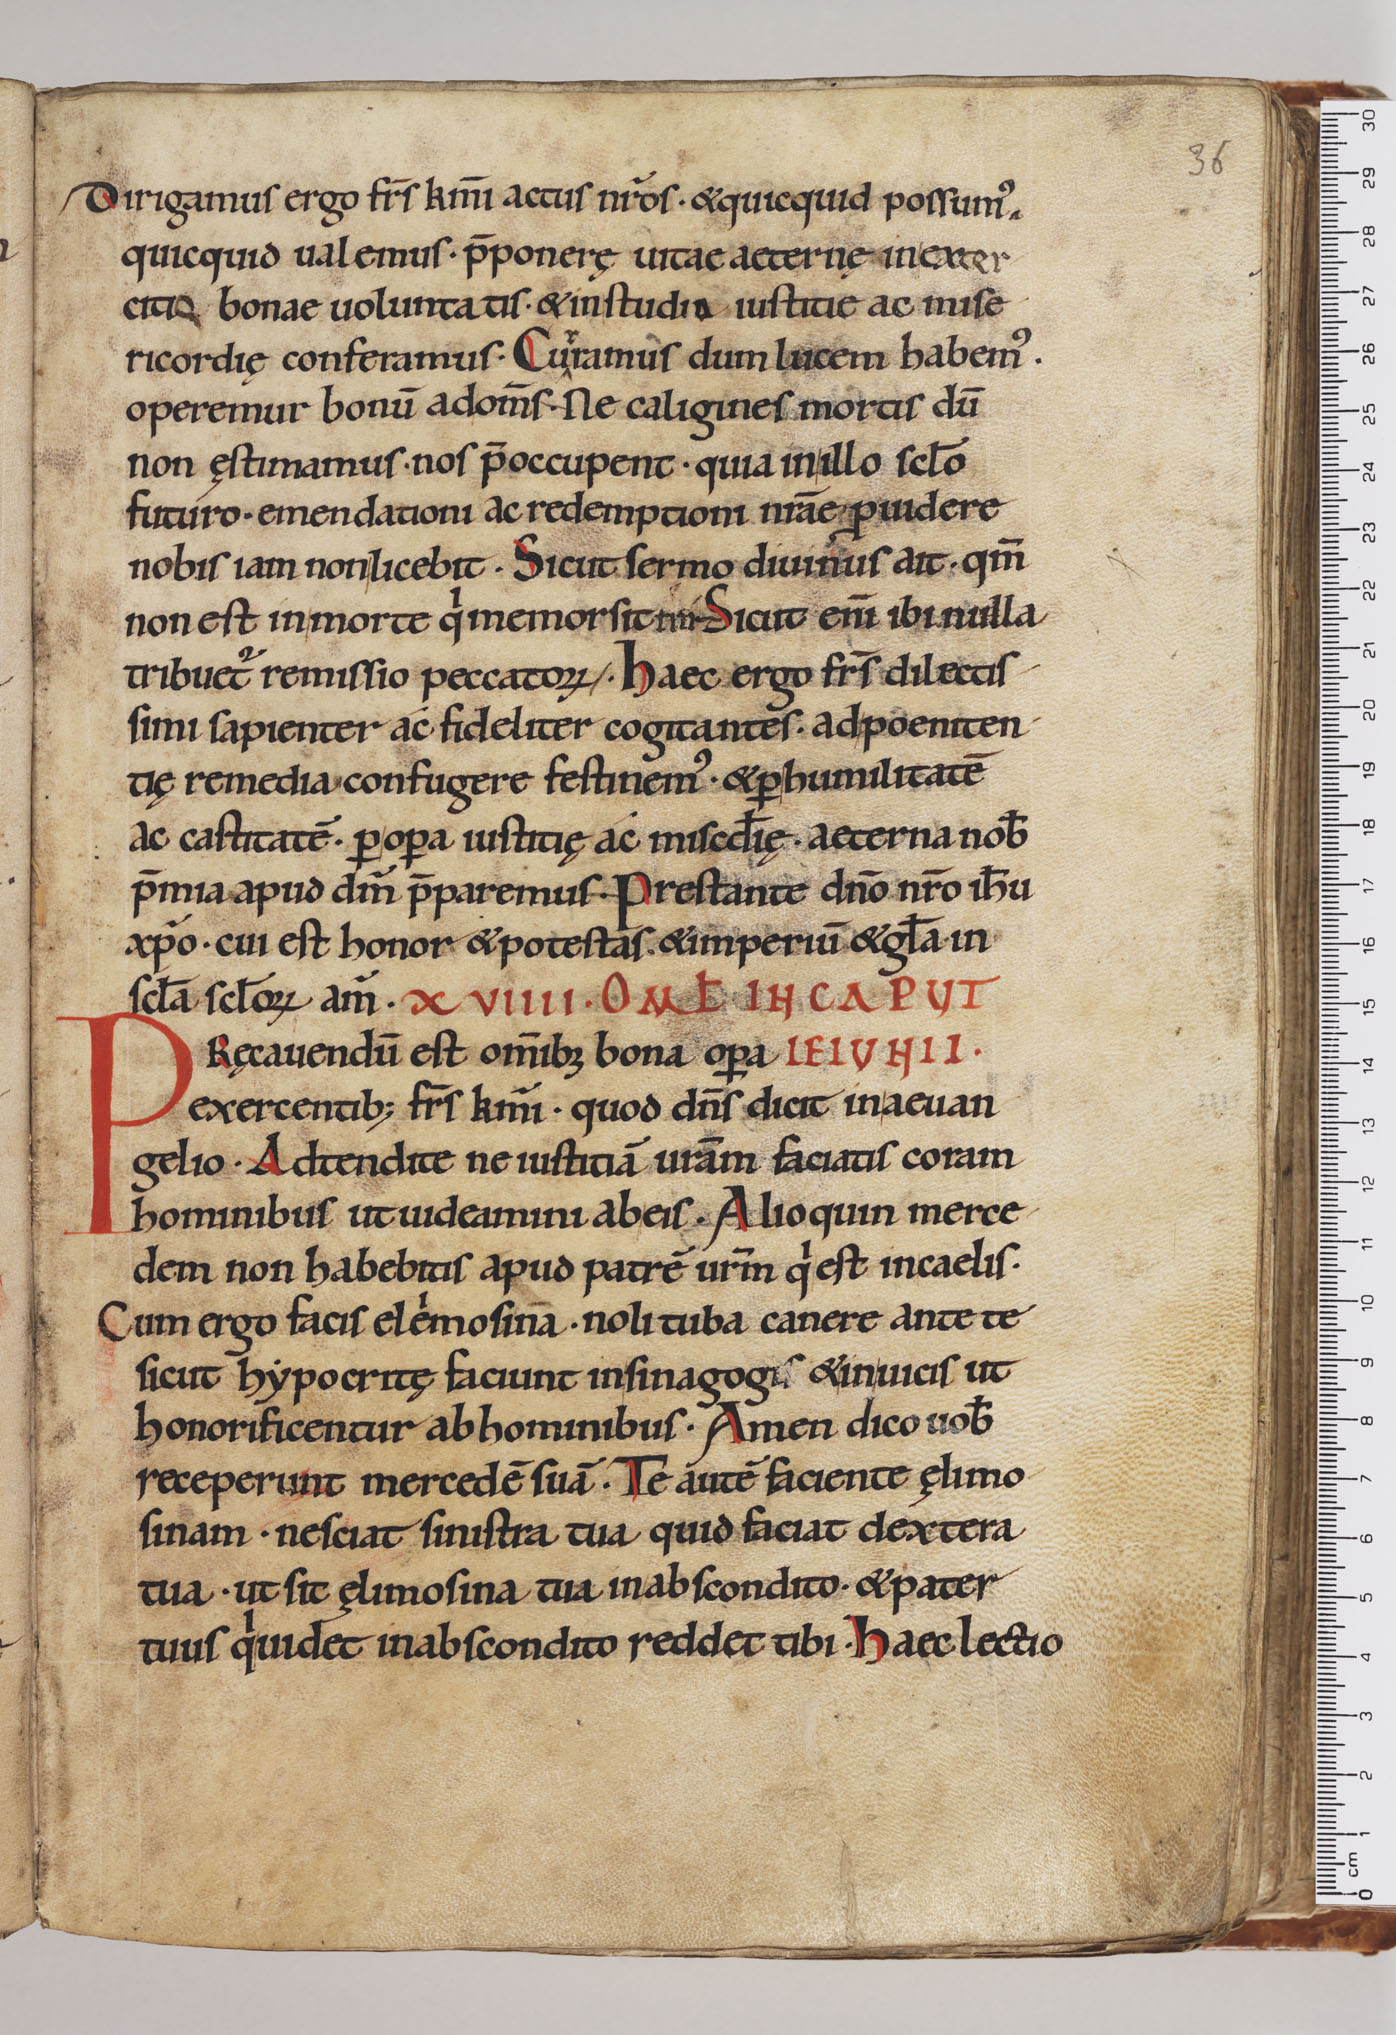 36
Dirigamus ergo fr̄s km̄i actus nr̄os · &quicquid possum᾿.
quicquid ualemus · p̄ponerę uitae aeternę inexer
citio bonae uoluntatis · &instudio iustitie ac mise
ricordię conferamus · Curramus dum lucem habem᾿ .
operemur bonū adom̄s · Ne caligines mortis dū
non ęstimamus · nos p̄occupent · quia inillo scl̄o
futuro · emendationi ac redemptioni nr̄ae ꝓuidere
nobis iam nonlicebit · Sicut sermo diuinus ait · qm̄
non est inmorte qͥmemorsit Sicut em̄ ibi nulla
tribuet᷑ remissio peccatoꝝ · haec ergo fr̄s dilectis
simi sapienter ac fideliter cogitantes · adpoeniten
tię remedia confugere festinem᾿ · &ꝑhumilitatē
ac castitatē · ꝑ oꝑa iustitię ac miscd̄ię · aeterna nob̄
p̄mia apud dm̄ p̄paremus · Prestante dn̄o nr̄o ih̄u
xp̄o · cui est honor &potestas · &imperiū &gl̄a in
scl̄a scl̄oꝝ am̄ · XVIIII · OMĒ INCAPUT
PRęcauendū est om̄ibꝫ bona oꝑa IEIUNII ·
exercentib; fr̄s km̄i · quod dn̄s dicit inaeuan
gelio · Adtendite ne iustitiā ur̄am faciatis coram
hominibus ut uideamini abeis · Alioquin merce
dem non habebitis apud patrē ur̄m qͥ est incaelis ·
Cum ergo facis elemosinā · noli tuba canere ante te
sicut hẏpocritę faciunt insinagogis &inuicis ut
honorificentur abhominibus · Amen dico uob̄
receperunt mercedē suā · Te autē faciente ęlimo
sinam · nesciat sinistra tua quid faciat dextera
tua · ut sit ęlimosina tua inabscondito · &pater
tuus qͥ uidet inabscondito reddet tibi · haec lectio